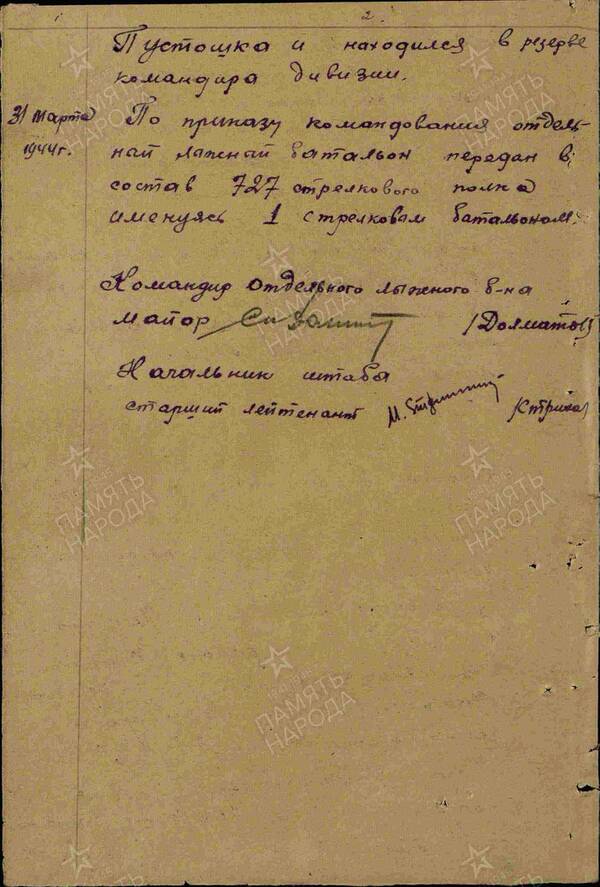 1
2
Пустошка и находился в резерве
командира дивизии.
31 марта
1944г.
По приказу командования отдель-
ный лыжный батальон передан в
состав 727 стрелкового полка
именуясь 1 стрелковым батальоном.
Командир отдельного лыжного б-на
майор /Долматов/
Начальник штаба
старший лейтенант
ПАМЯТЬ
НАРОДА